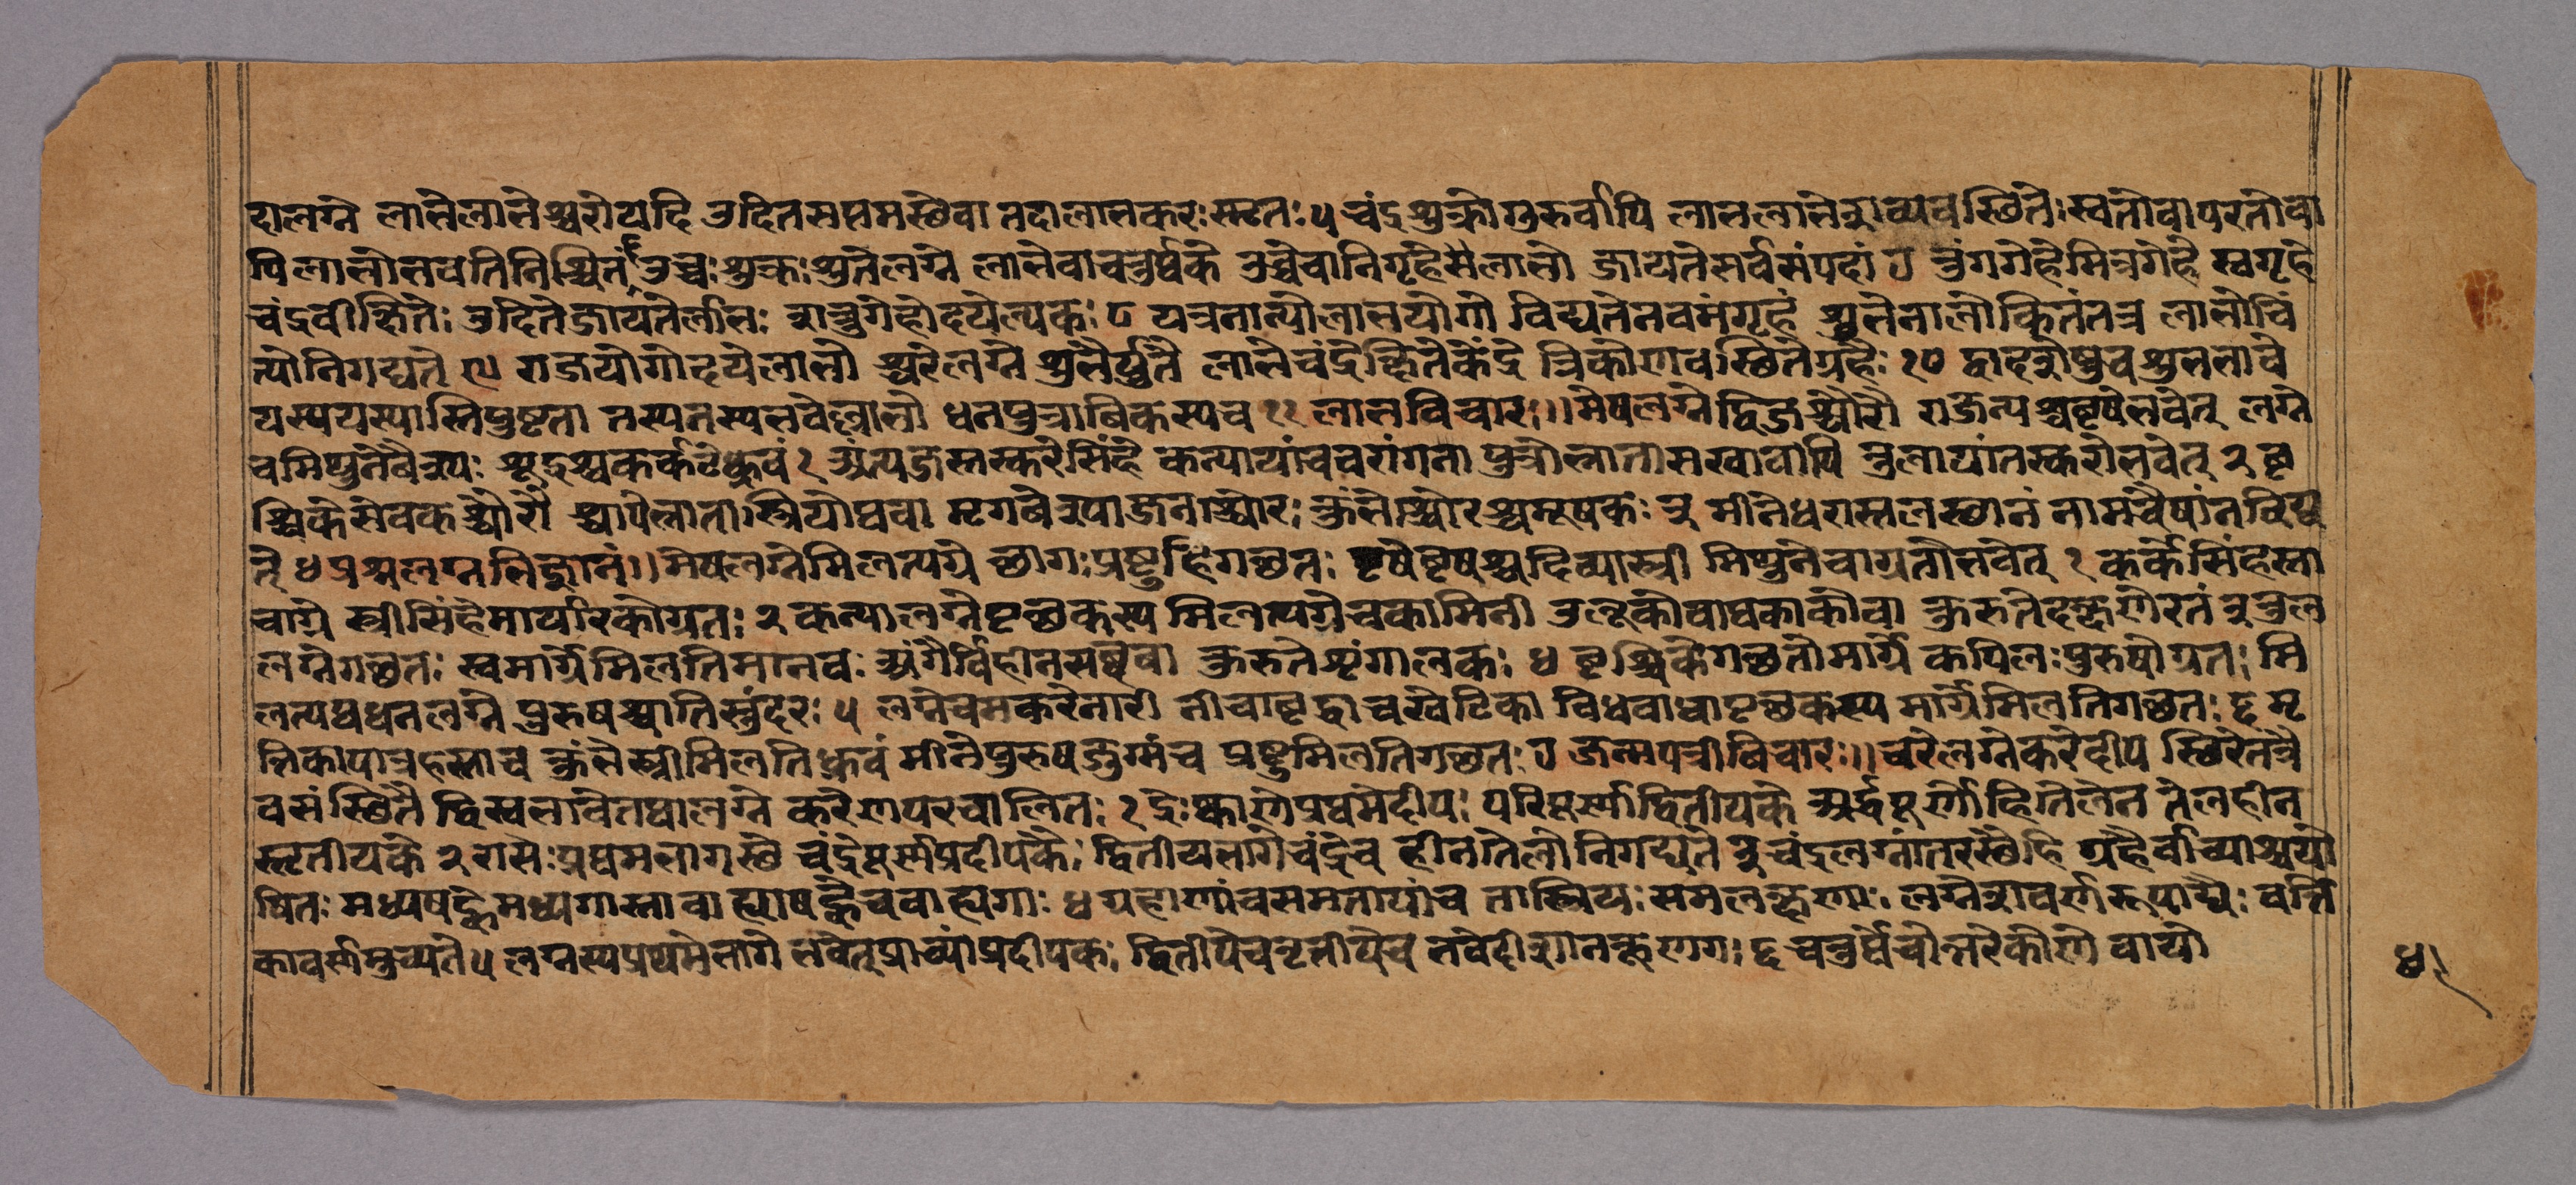 दालग्ने लाभेलाभेश्वरोयदि उदितसप्तमस्थेवा तदालाभकरःस्मृतः ५ चंद्रशुक्रोगुरुर्वापि लाभलाभेशव्यवस्थिते स्वतोवापरतोवा
पिलाभोभवतिनिश्चितं उच्चःशुक्रःशुभेलग्ने लाभेवाचतुर्थके उच्चेवानिगृहेसेलाभो जायतेसर्वसंपदां ७ तुंगगेहेमित्रगेहे स्वगृहे
चंद्रवीक्षिते उदितेजायतेर्लाभः शत्रुगेहोदयेल्पकः ८ यत्रनात्योलाभयोगो विद्यतेनवमंगृहं शुभेनालोकितंतत्र लाभोचिं
त्योनिगद्यते ९ राजयोगोदयेलाभो श्चरेलग्ने शुभैर्युते लाभेचंद्रेक्षितेकेंद्रे त्रिकोणवस्थितेग्रहैः १० द्वादशेषुचशुभभावे
यस्ययस्यास्तिपुष्टता तस्यतस्यभवेल्लाभो धनपुत्रादिकस्यच ११ लाभविचारः॥ मेषलग्नेद्विजश्चौरो राजन्यश्चवृषेभवेत् लग्ने
चमिथुनेवैश्यः शूद्रश्चकर्कटेध्रुवं १ अंत्यजस्तस्करेसिंहे कन्यायांचवरांगना पुत्रोभ्रातासखावापि तुलायांतस्करोभवेत् २ वृ
श्चिकेसेवकश्चौरो श्चापेभ्राताःस्त्रियोथवा मृगेवैश्योजनश्चोरः कुंभेश्चोरश्चमूषकः ३ मीनेधरास्तलस्थानं नामचैषांनविद्य
ते ४ प्रश्नलग्नभिज्ञानं॥ मेषलग्नेमिलत्यग्रे छागःप्रष्टुर्हिगछतः वृषेवृषश्चदिव्यास्त्री मिथुनेचाग्रतोभवेत् १ कर्केसिंहस्ना
चाग्रे स्त्रीसिंहेमार्यारिकोग्रतः २ कन्यालग्नेपृछकस्य मिलत्यग्रेचकामिनी उलूकोवाथकाकोवा कुरुतेदक्षणेरतं ३ तुल
लग्नेगछतः स्वमार्ग्रेमिलतिमानवः अंगैर्विहीनसथवा कुरुतेशृंगालकः ४ वृश्चिकेगछतोमार्ग्रे कपिलःपुरुषोग्रतः मि
लत्यथधनलग्ने पुरुषश्चातिसुंदरः ५ लग्नेचमकरेनारी नीचावृद्धाचखेटिका विधवावापृछकस्य मार्ग्रेमिलतिगछतः ६ मृ
त्तिकापात्रहस्ताच कुंभेस्त्रीमिलतिध्रुवं मीनेपुरुषजुग्मंच प्रष्टुमिलतिगछतः ७ जन्मपत्रीविचारः॥ चरेलग्नेकरेदीप स्थिरेतत्रै
वसंस्थिते द्विस्वभावेतथालग्ने करेणपरचालितः १ द्रेःष्काणेप्रथमेदीप परिपूर्णोद्वितीयके अर्द्धपूर्णोहितेलेन तेलहीन
स्तृतीयके २ राशेःप्रथमभागस्थे चंद्रेपूर्णप्रदीपके द्वितीयभागेचंद्रेच हीनतेलोनिगद्यते ३ चंद्रलग्नांतरस्थैहि ग्रहैर्वाच्याश्चयो
षितः मध्यषट्केमध्यगास्तावा ह्याषट्केचवाह्यगाः ४ ग्रहाणांचसमतायांच तास्त्रियःसमलक्षणाः लग्नेशवर्णरूपाद्यैः वर्त्ति
कावर्णमुच्यते ५ लग्नस्यप्रथमेभागे भवेत्प्राच्यांप्रदीपकः द्वितीयेचतृतीयेच भवेदीशानकूणगः ६ चतुर्थेचोत्तरेकोणे वायो
४१